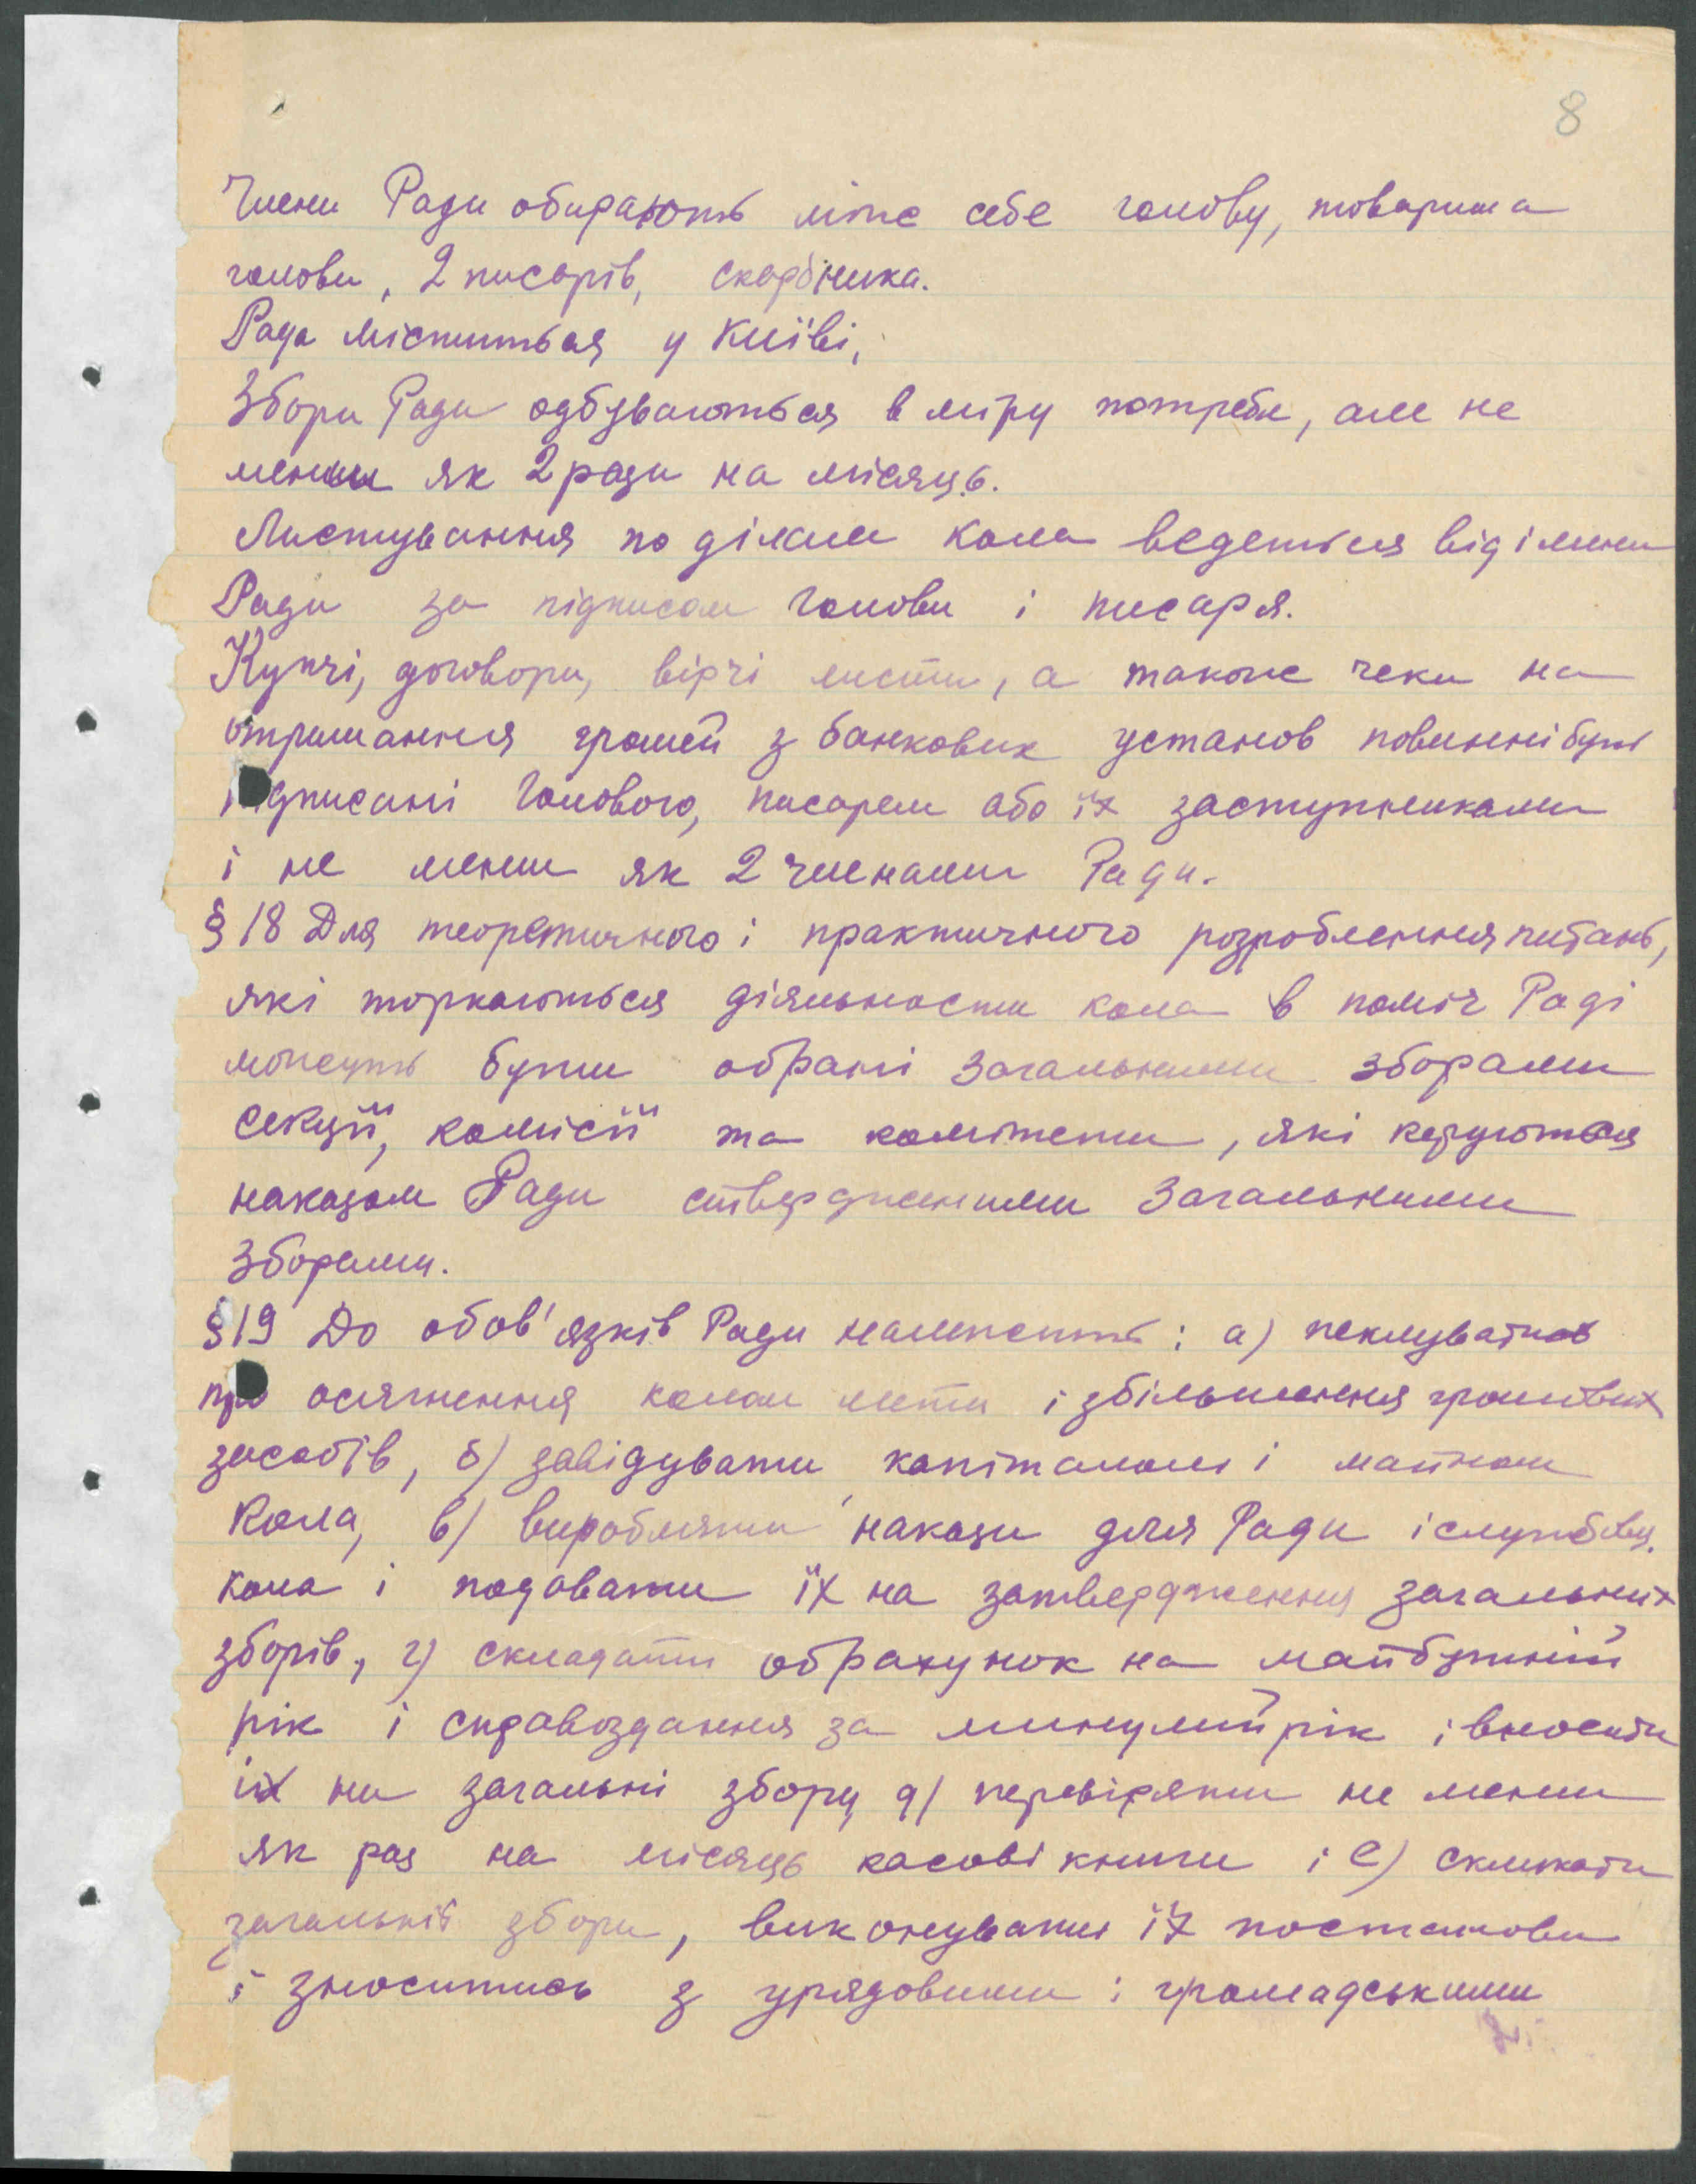 8
Члени Ради обирають між себе голову, товариша
голови, 2 писарів, скарбника.
Рада міститься у Київі,
Збори Ради одбуваються в міру потреби, але не
менш як 2 рази на місяць.
Листування по ділам кола ведеться від імени
Ради за підписом Голови і писаря.
Купчі, договори, вірчі листи, а також чеки на
отримання грошей з банкових установ повинні бути
підписані Головою, писарем або їх заступниками
і не менш як 2 членами Ради.
§ 18 Для теоретичного і практичного розроблення питань,
які торкаються діяльности кола в поміч Раді
можуть бути обрані Загальними зборами
секції, комісії та комітети, які керуються
наказом Ради ствердженими Загальними
Зборами.
§ 19 До обов'язків Ради належить: а) піклуватись
про осягнення колом мети і збільшення грошових
засобів, б) завідувати капіталом і майном
Кола, в) виробляти накази для Ради і службовц.
кола і подавати їх на затвердження загальних
зборів, г) складати обрахунок на майбутній
рік і справоздання за минулий рік і вносити
їх на загальні збори, д) перевіряти не менш
як раз на місяць касові книги і е) скликати
загальні збори, виконувати їх постанови
і зноситись з урядовими і громадськими